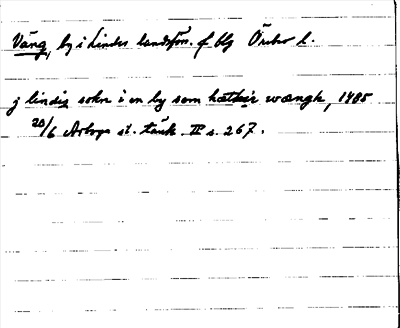 Väng, by i Lindes landsförs. f blg Örebro l.
j lindis sokn i en by som hæthir wængh, 1485
20/6 Arboga st. tänk. III s. 267.